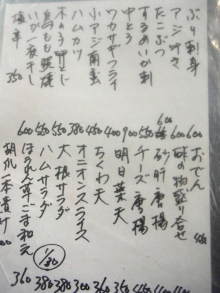 ぶり刺身
アジ叩き
たこぶつ
するめいか刺
中とろ
ワカサギフライ
小アジ南蛮
ハムカツ
いか一夜干し
塩辛
350
600 550 550 380 450 400 900 550 600 600
おでん
酢の物盛り合せ
砂肝唐揚
チーズ唐揚
明日葉天
ちくわ天
オニオンスライス
大根サラダ
ハムサラダ
ほうれん草ごま和え
胡瓜一本漬け
1/30
360 380 380 300 360 350